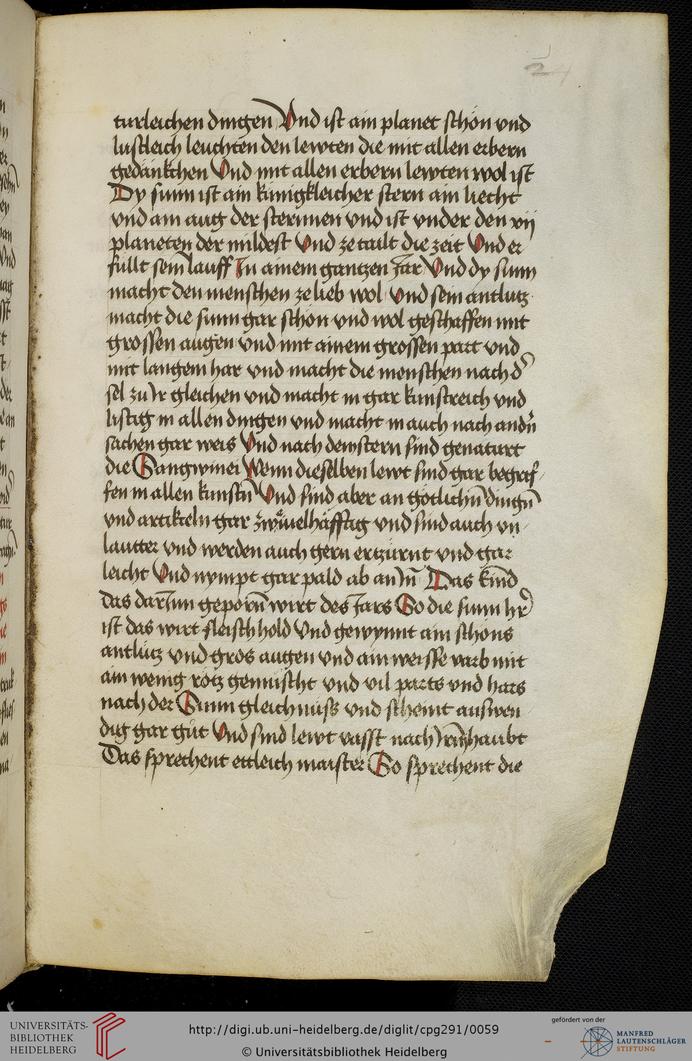 24
turleichen dingen Vnd ist ain planet schön vnd
lustleich leuchten den lewten die mit allen erbern
gedänkchen Vnd mit allen erbern lewten wol ist
Dy sunn ist ain künigkleicher stern ain liecht
vnd ain aug der sternnen vnd ist vnder den vij
planeten der mildest Vnd ze tailt die zeit Vnd er
füllt sein lauff In ainem gantzen Jar Vnd dy sunn
macht den menschen ze lieb wol Vnd sein antlutz
macht die sunn gar schön vnd wol geschaffen mit
grossen augen vnd mit ainem grossen part vnd
mit langem har vnd macht die menschen nach
sel zu Ir gleichen vnd macht in gar kunstreich vnd
listig in allen dingen vnd macht in auch nach andn̄
sachen gar weis Vnd nach dem stern sind genaturt
die Sangwinei Wenn dieselben lewt sind gar begreif
fen in allen kunstn̄ Vnd sind aber an götlichn̄ dingn̄
vnd artikeln gar zwiuelhäfftig vnd sind auch vn
lautter vnd werden auch gern erzürnt vnd gar
leicht Vnd nympt gar pald ab an Das kind
das darInn geporn̄ wirt des Jars So die sunn
ist das wirt fleisch hold Vnd gewynnt ain schöns
antlütz vnd gros augen vnd ain weisse varb mit
ain wenig rötz gemischt vnd vil parts vnd hars
nach der Sunn gleichnüss vnd scheint auswen
dig gar güt Vnd sind lewt vasst nach haubt
Das sprechent ettleich maister So sprechent die
UNIVERSITÄTS-
BIBLIOTHEK
HEIDELBERG
http://digi.ub.uni-heidelberg.de/diglit/cpg291/0059
© Universitätsbibliothek Heidelberg
gefördert von der
MANFRED
LAUTENSCHLÄGER
STIFTUNG